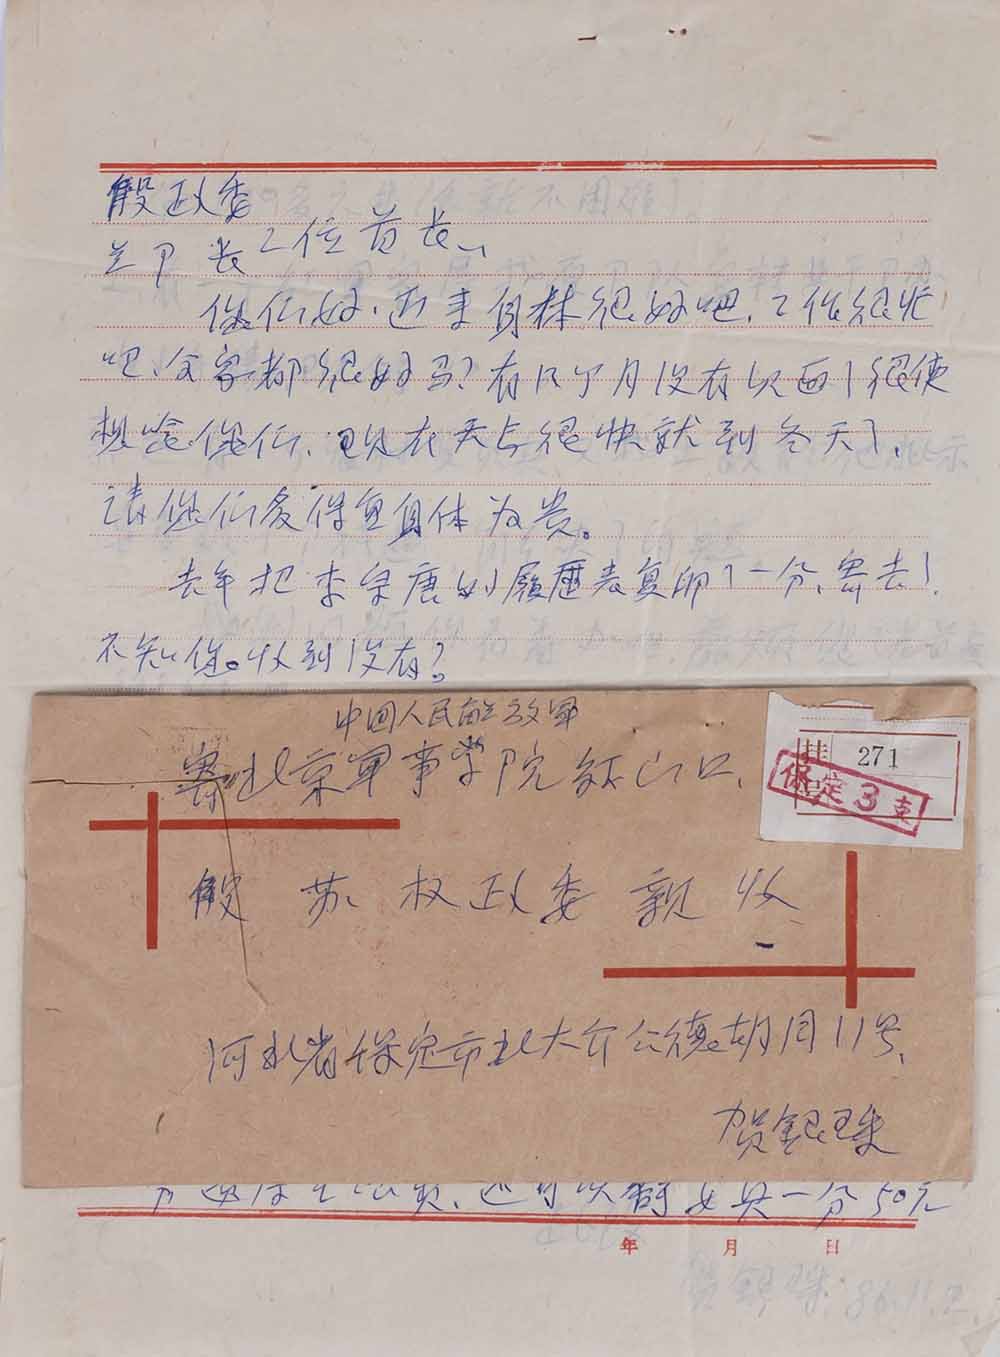 殷政委
兰卩长二位首长、
你们好、近来身体很好吧、工作很忙
吧、全家都很好吗？有几个月没有见面了很使
想念你们、现在天气很快就到冬天了、
请你们多保重身体为贵。
去年把李保唐的履歷表复印了一分、寄去了
不知你。收到没有？
中国人民解放军
寄北京军事学院红山口、
挂号
271
保定3支
殷苏权政委亲收
河北省保定市北大街公德胡同11号、
贺银珠
还可以 一分50元
年 月 日
贺银珠 86.11.2